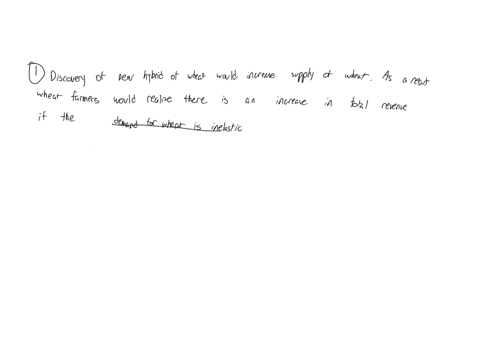 ① Discovery of new hybrid of wheat would increase supply of wheat. As a result
wheat farmers would realise there is an increase in total revenue
if the demand for wheat is inelastic